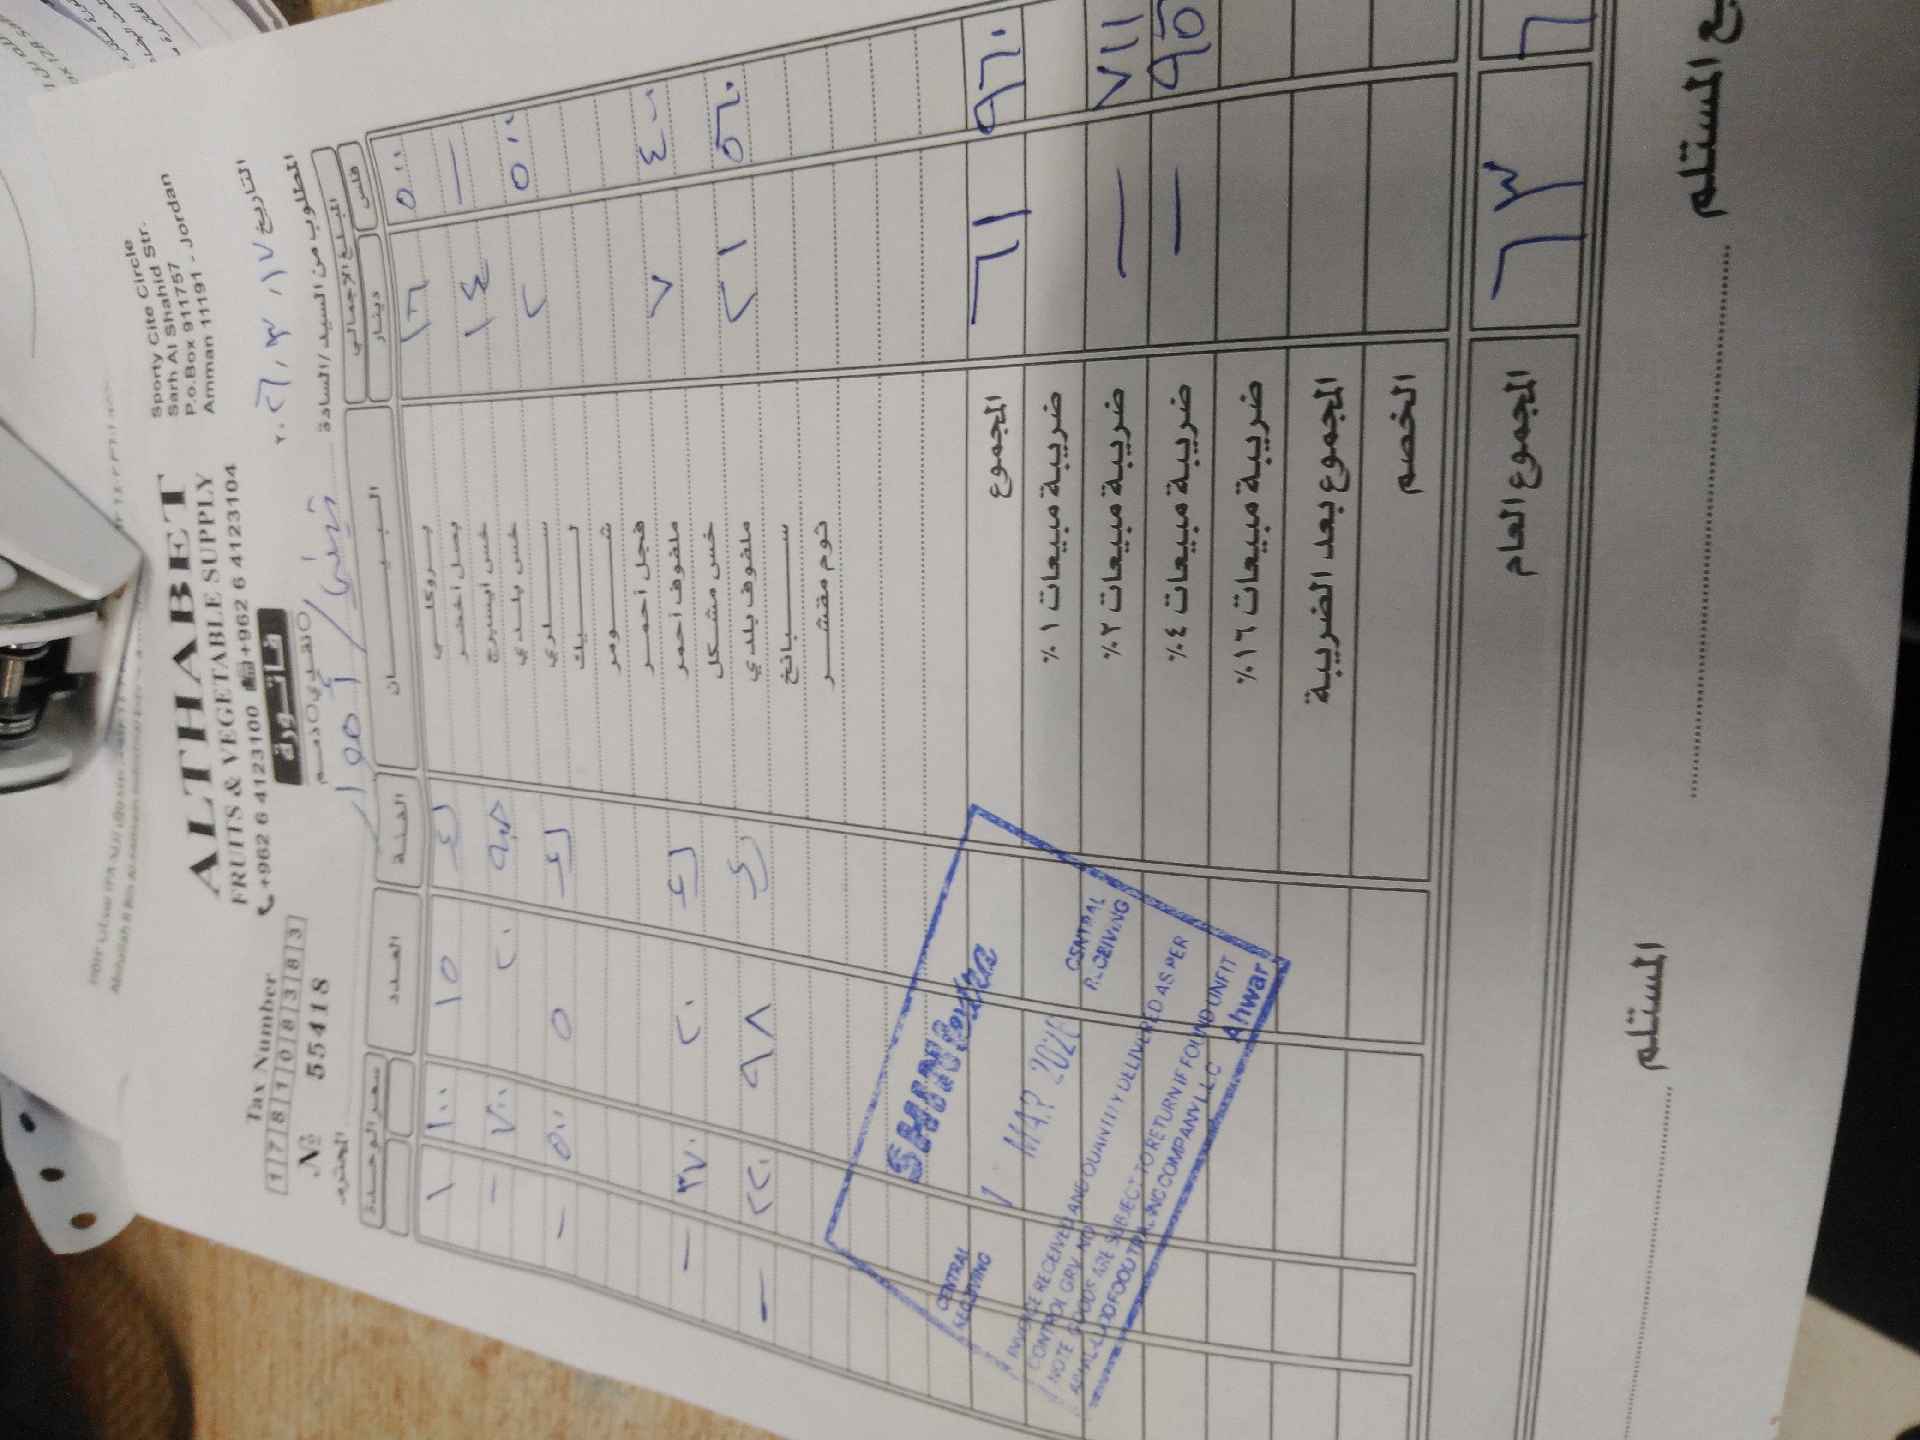 ALTHABET
FRUITS & VEGETABLE SUPPLY
+962 6 4123100 +962 6 4123104
Sporty Cite Circle
Sarh Al Shahid Str.
P.o.Box 911757
Amman 11191 - Jordan
Tax Number
178108383
№ 55418
فاتورة
نقدي ذمم
التاريخ ١٧ / ٣ / ٢٠٢٦
المطلوب من السيد / السادة
المحترم
المبلغ الإجمالي البيان العلبة العدد سعر الوحدة
فلس دينار
٥٠٠ ١٦ بروكلي ١٥ ١٠٠ ١
— ١٤ بصل أخضر
خس ايسبرج ٢٠ ٧٠٠ -
٥٠٠ ٢ خس بلدي
سلري ٥ ٥٠٠ -
ليك
شومر
فجل أحمر
٤٠٠ ٧ ملفوف أحمر ٢٠ ٣٧٠ -
خس مشكل
٥٦٠ ٢١ ملفوف بلدي ٩٨ ٢٢٠ -
سبانخ
ثوم مقشر
٩٦٠ ٦١ المجموع
ضريبة مبيعات ١ %
٧١١ — ضريبة مبيعات ٢ %
— ضريبة مبيعات ٤ %
ضريبة مبيعات ١٦ %
المجموع بعد الضريبة
الخصم
٦٣ المجموع العام
المستلم
ع المستلم
CENTRAL
RECEIVING
MAR 2026
CENTRAL
RECEIVING
INVOICE RECEIVED AND QUANTITY DELIVERED AS PER
CONTROL GRV NO
NOTE GOODS ARE SUBJECT TO RETURN IF FOUND UNFIT
FOOD TRADING COMPANY L.L.C Ahwar